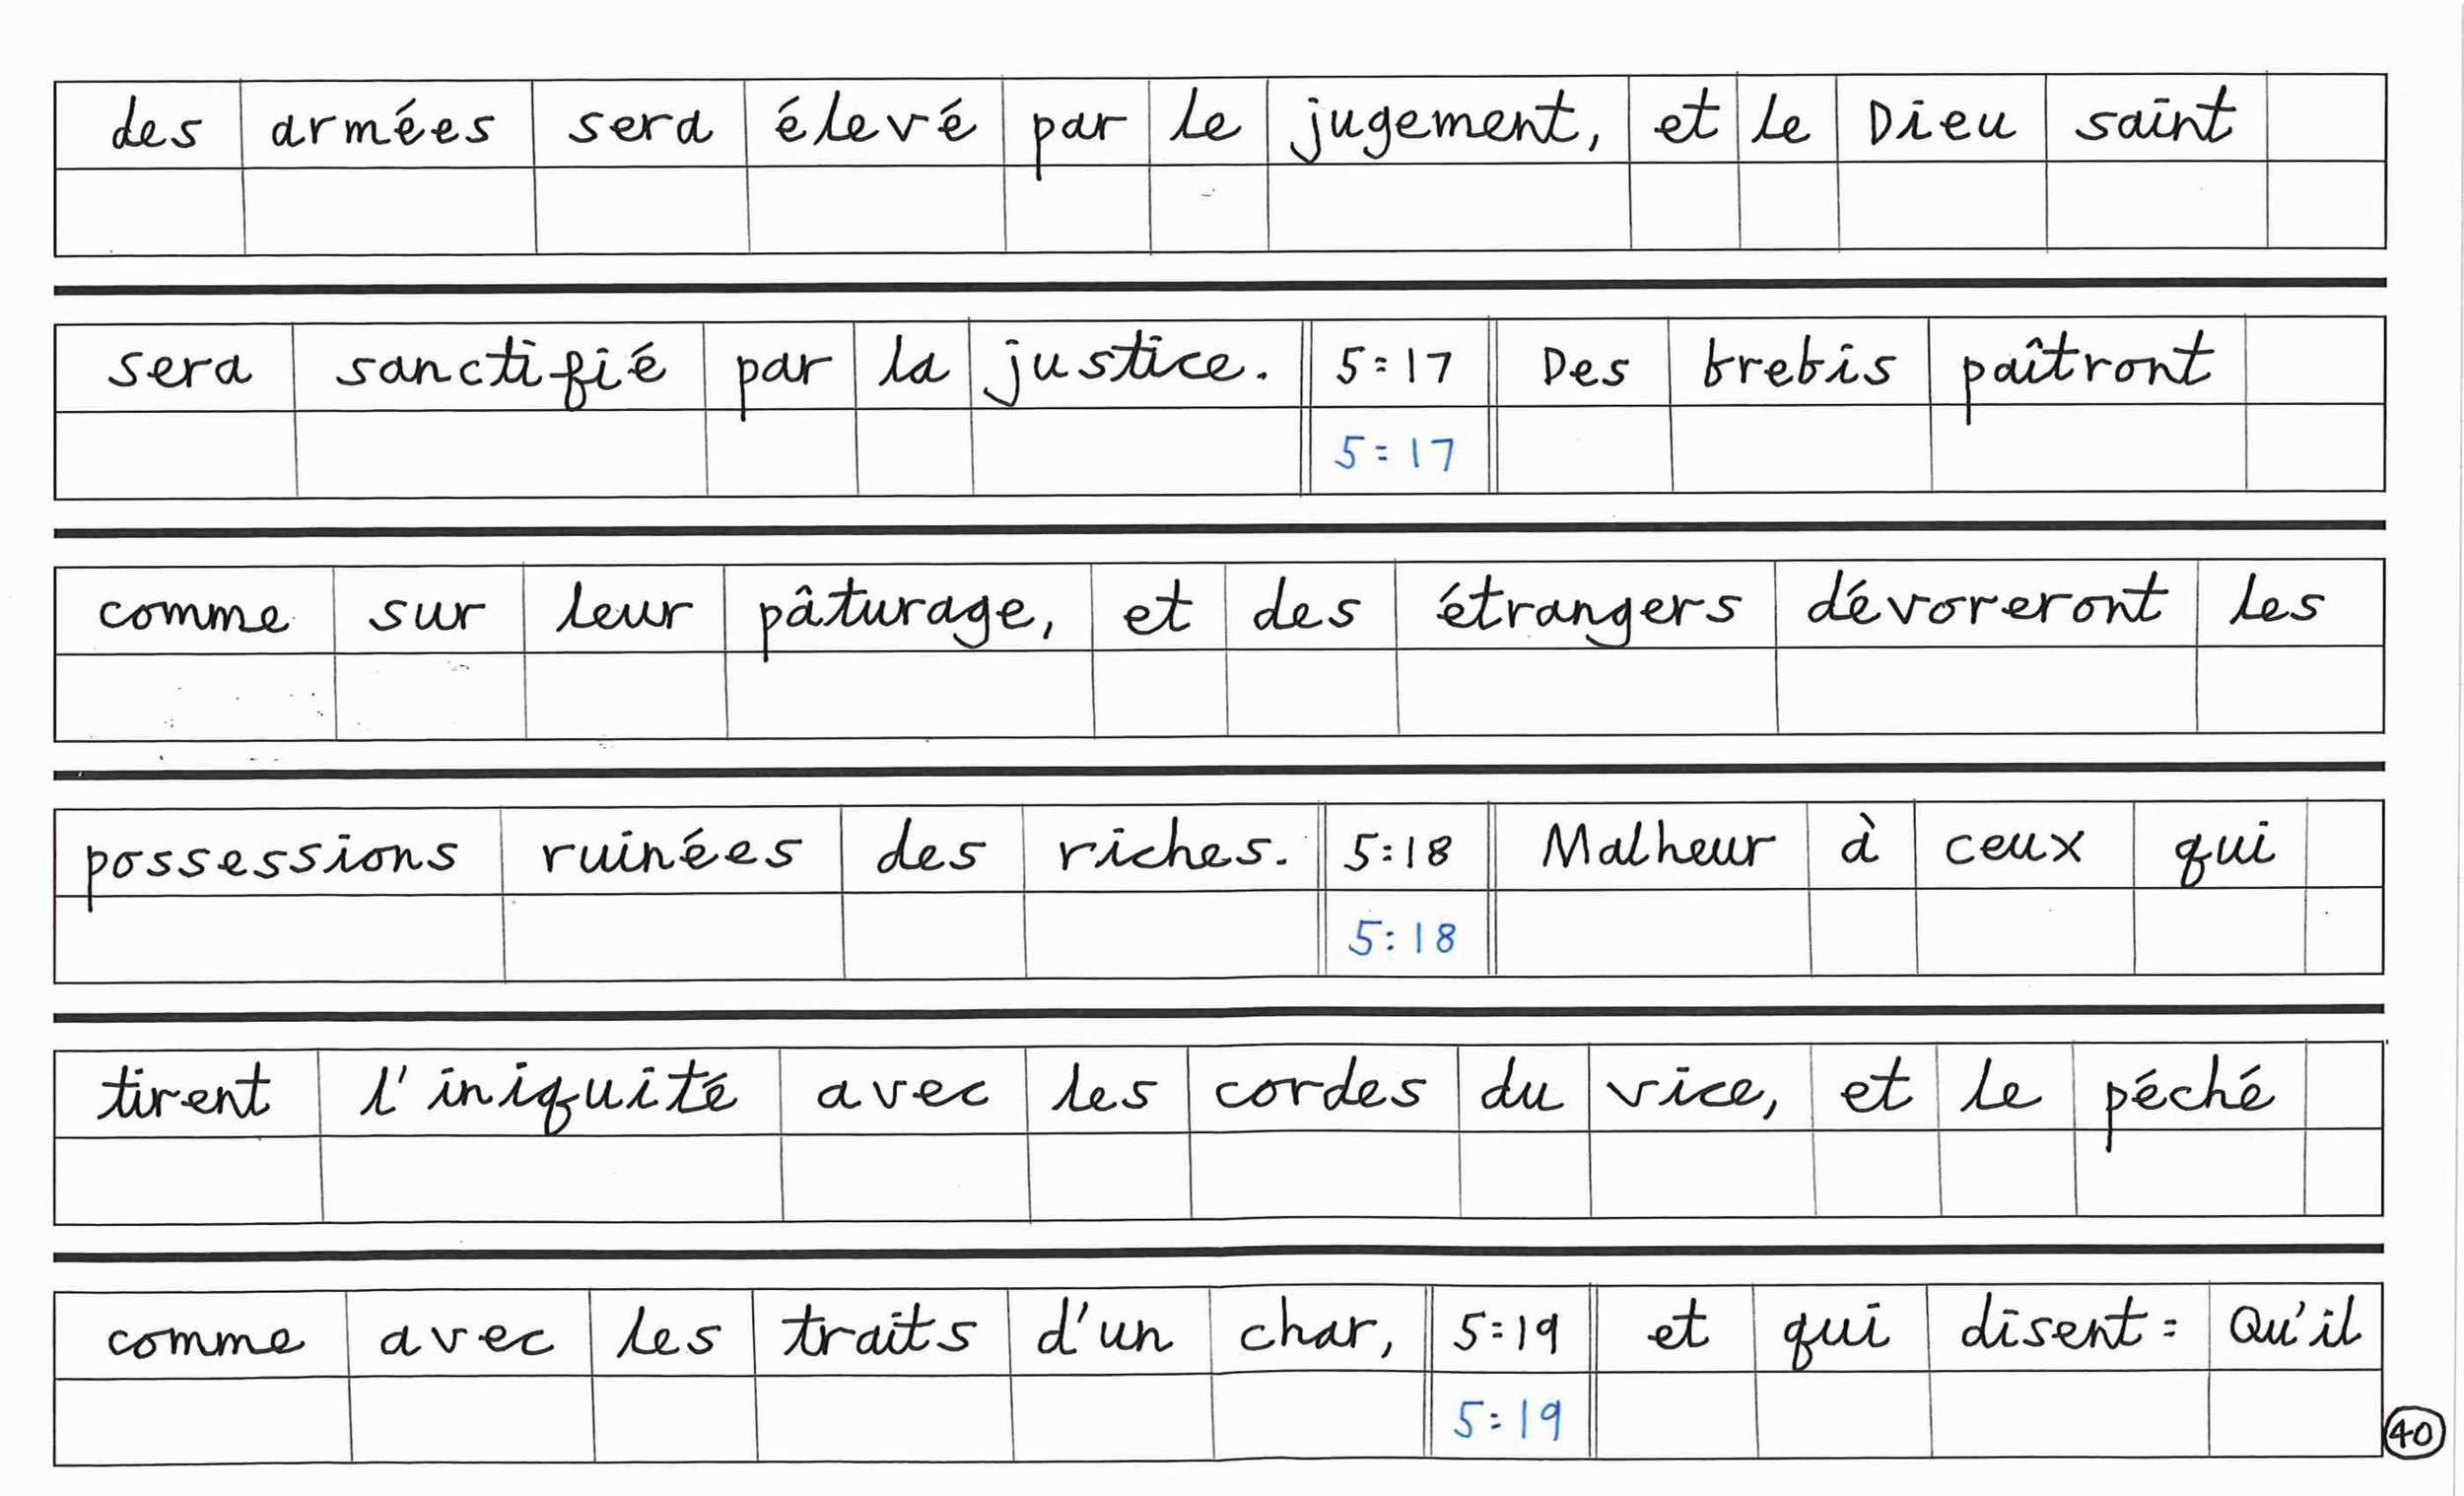 des armées sera élevé par le jugement, et le Dieu saint
sera sanctifié par la justice. 5:17 Des brebis paîtront
5:17
comme sur leur pâturage, et des étrangers dévoreront les
possessions ruinées des riches. 5:18 Malheur à ceux qui
5:18
tirent l'iniquité avec les cordes du vice, et le péché
comme avec les traits d'un char, 5:19 et qui disent: Qu'il
5:19
40